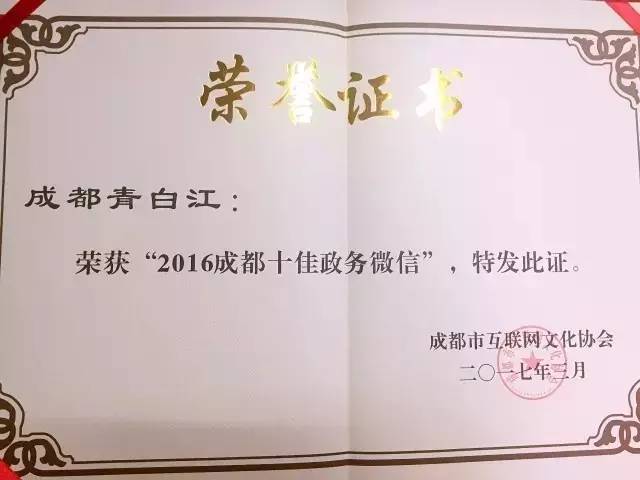 荣誉证书
成都青白江：
荣获“2016成都十佳政务微信”，特发此证。
成都市互联网文化协会
二〇一七年三月